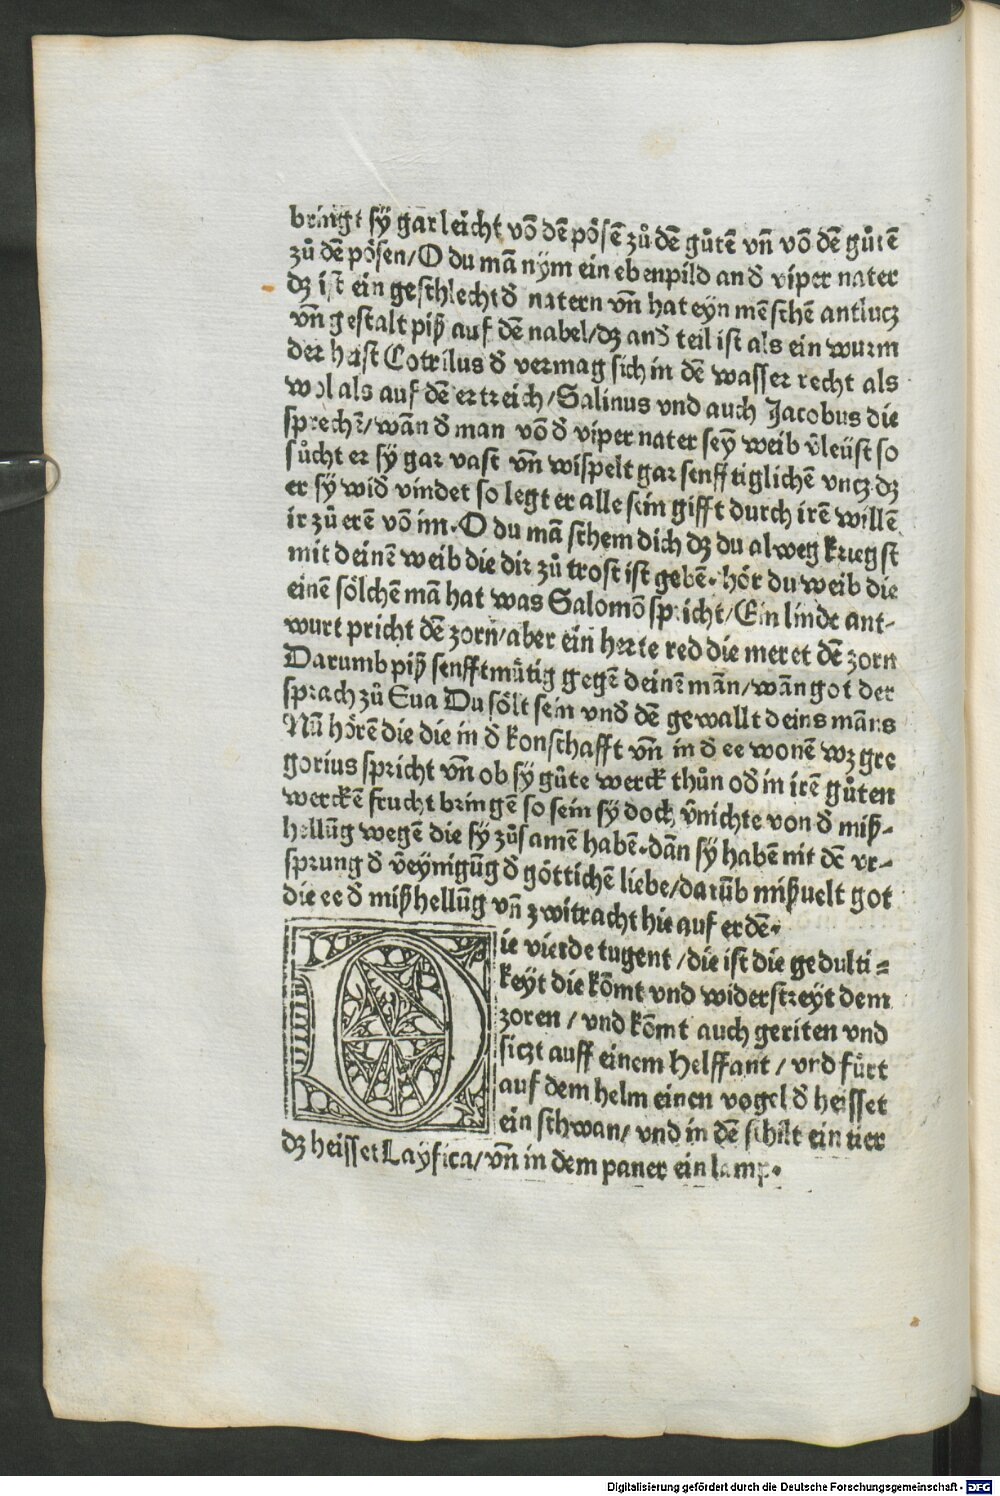 bringt sÿ gar leicht võ dẽ põsẽ zů dẽ gůtẽ vñ võ dẽ gůtẽ
zů dẽ põsen/O du mã nÿm ein ebenpild an đ viper nater
dʒ ist ein geschlecht đ natern vñ hat eyn mẽschẽ antlucʒ
vñ gestalt piß auf dẽ nabel/dʒ anđ teil ist als ein wurm
der heist Cotrilus đ vermag sich in dẽ wasser recht als
wol als auf dẽ ertreich/Salinus vnd auch Jacobus die
sprechẽ/wãn đ man võ đ viper nater seÿ weib v̄leüst so
sůcht er sÿ gar vast vñ wispelt gar senfftiglichẽ vncʒ dʒ
er sÿ wiđ vindet so legt er alle sein gifft durch irẽ willẽ
ir zů erẽ võ im. O du mã schem dich dʒ du alweg kriegst
mit deinẽ weib die dir zů trost ist gebẽ. hör du weib die
einẽ sölchẽ mã hat was Salomõ spricht/Ein linde ant-
wurt pricht dẽ zorn/aber ein herte red die meret dẽ zorn
Darumb piß senfftmůtig gegẽ deinẽ mãn/wãn got der
sprach zů Eua Du sölt sein vnđ dẽ gewallt deins mãns
Nũ hörẽ die die in đ konschafft vñ in đ ee wonẽ wʒ gre
gorius spricht vñ ob sÿ gůte werck thůn ođ in irẽ gůten
werckẽ frucht bringẽ so sein sÿ doch v̄nichte von đ miß-
hellũg wegẽ die sÿ zůsamẽ habẽ. dãn sÿ habẽ nit dẽ vr-
sprung đ v̄eÿnigũg đ göttichẽ liebe/darũb mißuelt got
die ee đ mißhellũg vñ zwitracht hie auf erdẽ.
Die vierde tugent/die ist die gedulti-
keyt die kõmt vnd widerstreÿt dem
zoren/vnd kõmt auch geriten vnd
siczt auff einem Helffant/vnd fůrt
auf dem helm einen vogel đ heisset
ein schwan/vnd in dẽ schilt ein tier
dʒ heisset Laÿfica/vñ in dem paner ein lamp.
Digitalisierung gefördert durch die Deutsche Forschungsgemeinschaft - DFG